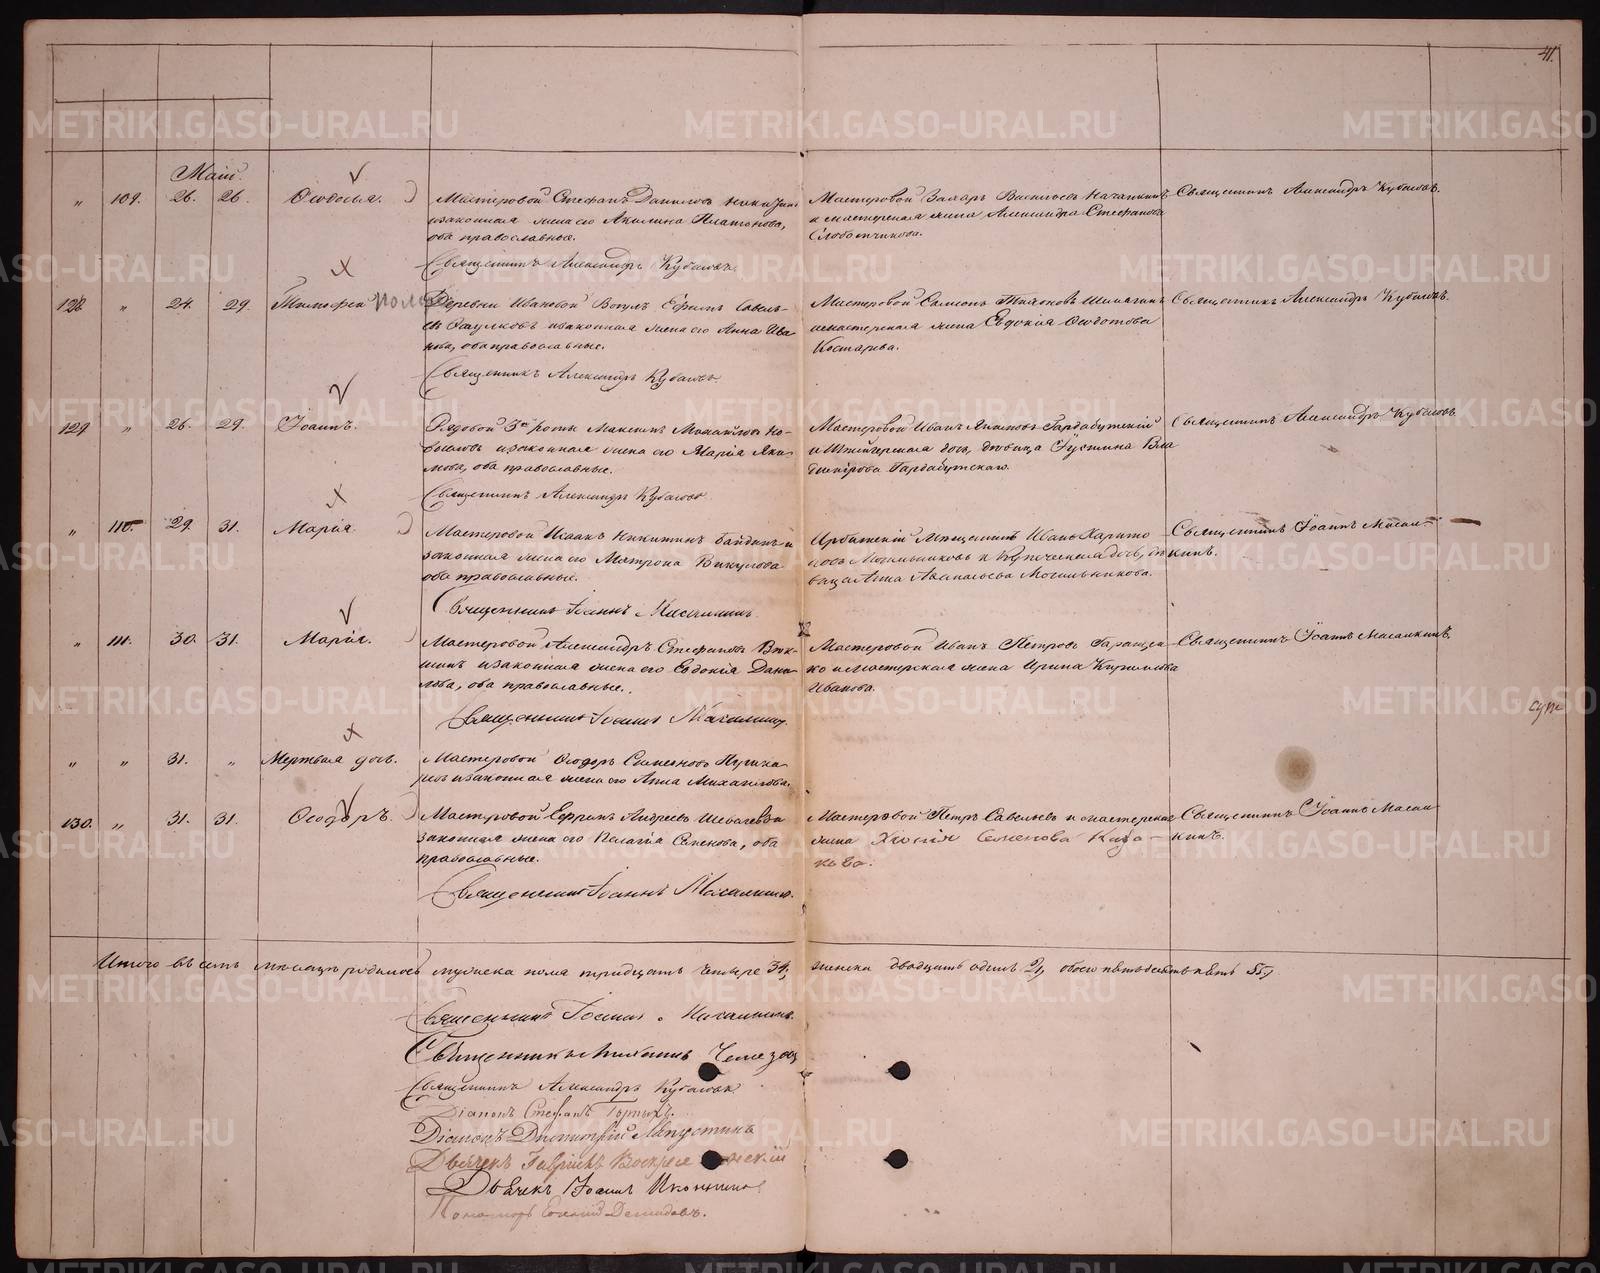 41.
Май.
" 109. 26. 26. Ѳеодосія.
Мастеровой Стефанъ Даниловъ
и законная жена его Акилина Платонова,
оба православные.
Священникъ Александръ Кубасовъ.
Мастеровой Захаръ Васильевъ
и мастерская жена Александра Стефанова
Слободчикова.
Священникъ Александръ Кубасовъ.
128. " 24. 29. Тимофей
Деревни Ивановой Вогулъ Ефимъ Савель-
евъ и законная жена его Анна Ива-
нова, оба православные.
Священникъ Александръ Кубасовъ.
Мастеровой Самсонъ Тихоновъ
и мастерская жена Евдокія Ѳедотова
Костарева.
Священникъ Александръ Кубасовъ.
129 " 26. 29. Іоаннъ.
Рядовой 3й роты Максимъ Михайловъ Ко-
и законная жена его Марія Яки-
мова, оба православные.
Священникъ Александръ Кубасовъ
Мастеровой Иванъ Акимовъ
дочь, девица Іустина Вла
димірова
Священникъ Александръ Кубасовъ.
" 110. 29. 31. Марія.
Мастеровой Исаакъ Никитинъ Байдинъ и
законная жена его Матрона Викулова
оба православные.
Священникъ Іоаннъ Масалкинъ.
Ирбитскій Мещанинъ Иванъ Харито
новъ Мыльниковъ и Купеческая дочь, дѣ
вица Анна Аѳанасьева Мыльникова.
Священникъ Іоаннъ Масал-
кинъ.
" 111. 30. 31. Марія.
Мастеровой Александръ Стефановъ
и законная жена его Евдокія Дани-
лова, оба православные.
Священникъ Іоаннъ Масалкинъ
Мастеровой Иванъ Петровъ
и мастерская жена Ирина Кирилова
Иванова.
Священникъ Іоаннъ Масалкинъ.
" " 31. " Мертвая дочь.
Мастеровой Ѳеодоръ Симеоновъ Пушка-
ревъ и законная жена его Анна Михайлова.
130. " 31. 31. Ѳеодоръ.
Мастеровой Ефремъ Андреевъ
законная жена его Пелагія Семенова, оба
православные.
Священникъ Іоаннъ Масалкинъ.
Мастеровой Петръ Савельевъ и мастерская
жена Хіонія Семенова Каза-
кова.
Священникъ Іоаннъ Масал-
кинъ.
Итого въ семъ месяце родилось мужеска пола тридцать четыре 34, женска двадцать одинъ 21, обоего пятьдесятъ пять 55,
Священникъ Іоаннъ Масалкинъ.
Священникъ
Священникъ Александръ Кубасовъ
Діаконъ Стефанъ
Діаконъ Димитрій Ляпустинъ
Дьячекъ Гавріилъ Воскресенскій
Дьячекъ Іоаннъ Иконниковъ
Пономарь Евгеній Демидовъ.
METRIKI.GASO-URAL.RU